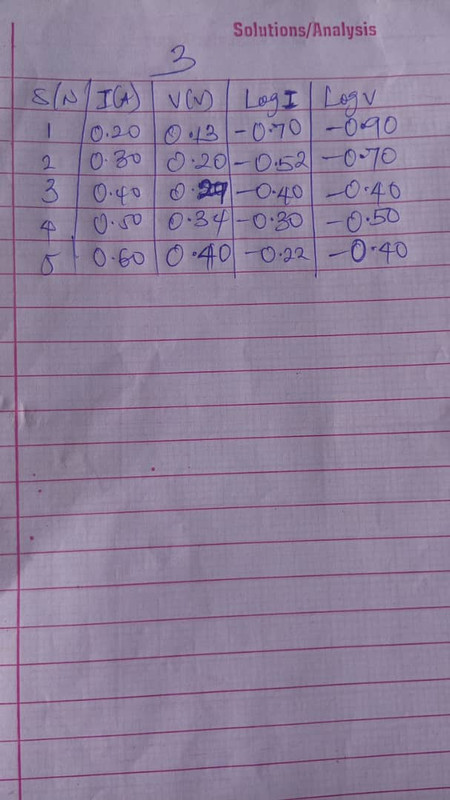 Solutions/Analysis
3
S/N I(A) V(V) Log I Log V
1 0.20 0.13 -0.70 -0.90
2 0.30 0.20 -0.52 -0.70
3 0.40 0.29 -0.40 -0.40
4 0.50 0.34 -0.30 -0.50
5 0.60 0.40 -0.22 -0.40